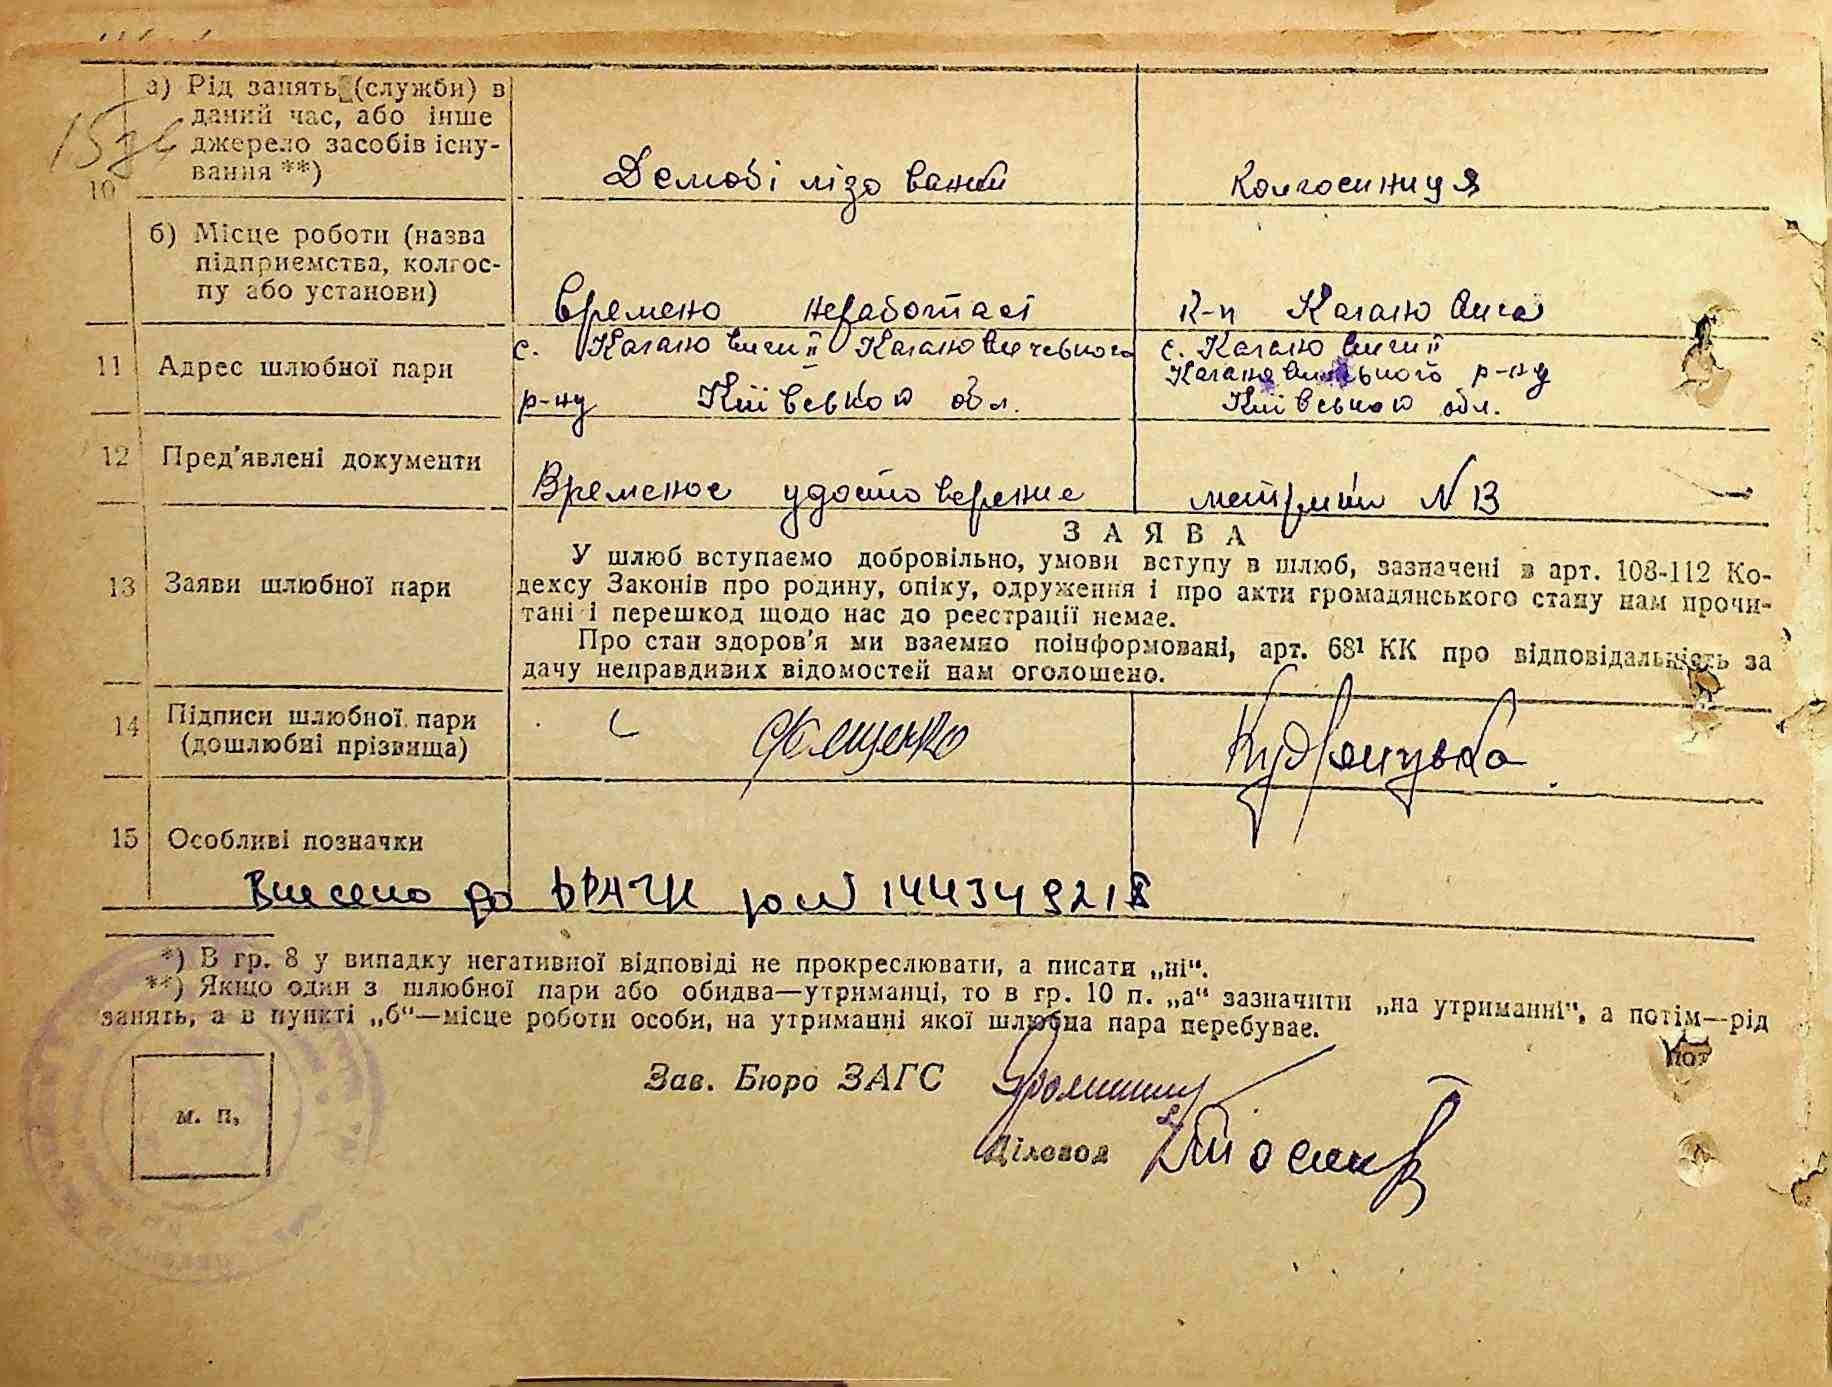 а) Рід занять (служби) в
даний час, або інше
джерело засобів існу-
вання **)
10
Демобілізований
Колгоспниця
б) Місце роботи (назва
підприємства, колгос-
пу або установи)
Времено неработает
к-п Кагановича
11 Адрес шлюбної пари
с. Кагановичи II Кагановичевського
р-ну Київської обл.
с. Кагановичи II
Кагановичського р-ну
Київської обл.
12 Пред'явлені документи
Временое удостоверение
метрики N 13
ЗАЯВА
13 Заяви шлюбної пари
У шлюб вступаємо добровільно, умови вступу в шлюб, зазначені в арт. 108-112 Ко-
дексу Законів про родину, опіку, одруження і про акти громадянського стану нам прочи-
тані і перешкод щодо нас до реєстрації немає.
Про стан здоров'я ми взаємно поінформовані, арт. 68¹ КК про відповідальність за
дачу неправдивих відомостей нам оголошено.
14 Підписи шлюбної пари
(дошлюбні прізвища)
15 Особливі позначки
Внесено до ДРАЦС за №
*) В гр. 8 у випадку негативної відповіді не прокреслювати, а писати „ні“.
**) Якщо один з шлюбної пари або обидва—утриманці, то в гр. 10 п. „а“ зазначити „на утриманні“, а потім—рід
занять, а в пункті „б“—місце роботи особи, на утриманні якої шлюбна пара перебуває.
Зав. Бюро ЗАГС
Діловод
м. п.